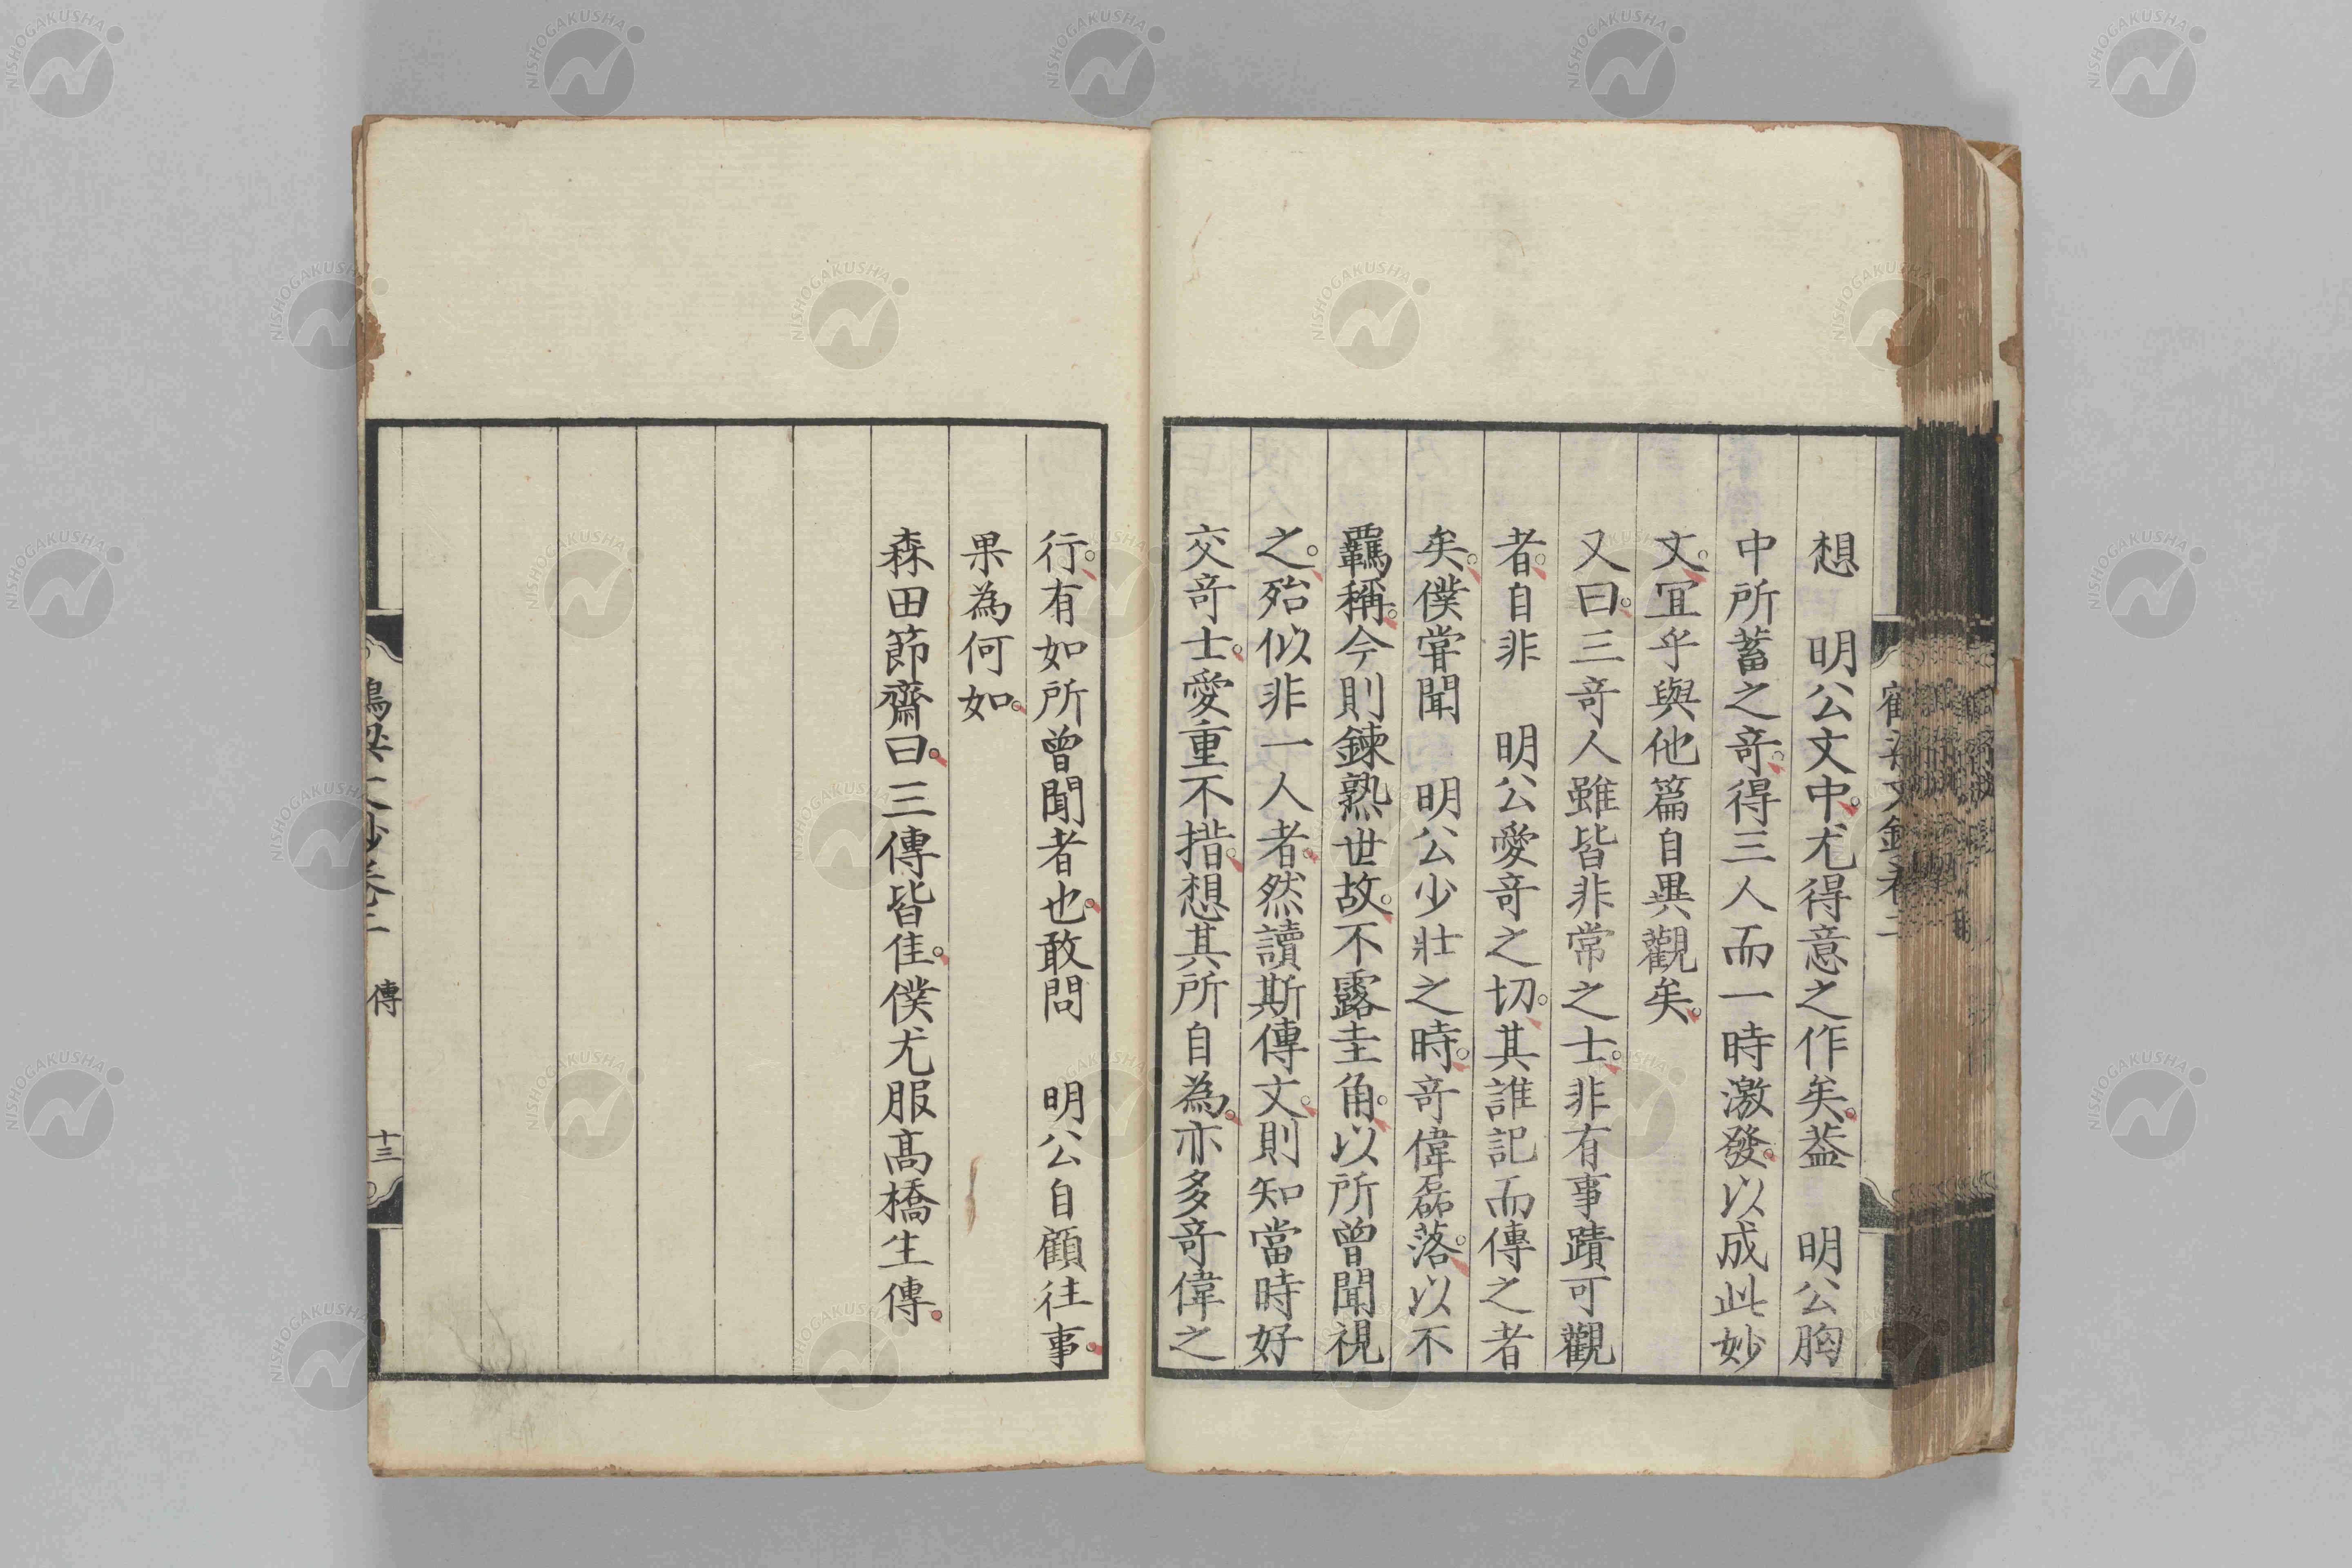 想　明公文中。尤得意之作矣。葢　明公胸
中所蓄之竒。得三人而一時激發。以成此妙
文。冝乎與他篇自異觀矣。
又曰。三竒人雖皆非常之士。非有事蹟可觀
者。自非　明公愛竒之切。其誰記而傳之者
矣。僕甞聞　明公少壯之時。竒偉磊落。以不
羈稱。今則鍊熟世故。不露圭角。以所曾聞視
之。殆似非一人者。然讀斯傳文。則知當時好
交竒士。愛重不措。想其所自為。亦多竒偉之
行。有如所曾聞者也。敢問　明公自顧往事。
果為何如。
森田節齋曰。三傳皆佳。僕尤服髙橋生傳。
傳
十三
NISHOGAKUSHA